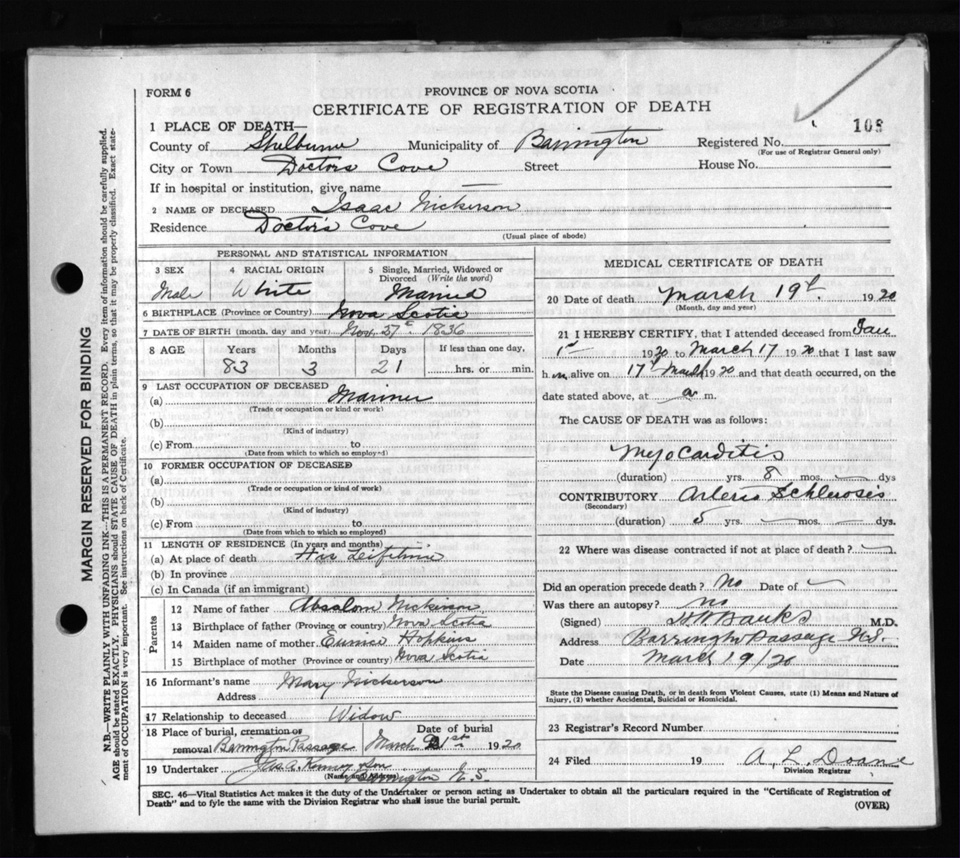 FORM 6
PROVINCE OF NOVA SCOTIA
CERTIFICATE OF REGISTRATION OF DEATH
1 PLACE OF DEATH—
County of Shelburne Municipality of Barrington Registered No. 108
(For use of Registrar General only)
City or Town Doctors Cove Street House No.
If in hospital or institution, give name —
2 NAME OF DECEASED Isaac Nickerson
Residence Doctors Cove
(Usual place of abode)
PERSONAL AND STATISTICAL INFORMATION
3 SEX 4 RACIAL ORIGIN 5 Single, Married, Widowed or Divorced (Write the word)
Male White Married
6 BIRTHPLACE (Province or Country) Nova Scotia
7 DATE OF BIRTH (month, day and year) Nov. 1836
8 AGE Years Months Days If less than one day,
83 3 21 hrs. or min.
9 LAST OCCUPATION OF DECEASED
(a) Mariner
(Trade or occupation or kind or work)
(b)
(Kind of industry)
(c) From to
(Date from which to which so employed)
10 FORMER OCCUPATION OF DECEASED
(a)
(Trade or occupation or kind or work)
(b)
(Kind of industry)
(c) From to
(Date from which to which so employed)
11 LENGTH OF RESIDENCE (In years and months)
(a) At place of death His Leiftime
(b) In province
(c) In Canada (if an immigrant)
Parents
12 Name of father Absalom Nickerson
13 Birthplace of father (Province or country) Nova Scotia
14 Maiden name of mother Eunice Hopkins
15 Birthplace of mother (Province or country) Nova Scotia
16 Informant's name Mary Nickerson
Address
17 Relationship to deceased Widow
18 Place of burial, cremation or removal Barrington Passage Date of burial March 21st 1920
19 Undertaker Son
(Name and Address) Barrington N.S.
MEDICAL CERTIFICATE OF DEATH
20 Date of death March 19th 1920
(Month, day and year)
21 I HEREBY CERTIFY, that I attended deceased from Jan
1st 1920 to March 17 1920 that I last saw
him alive on 17th March 1920 and that death occurred, on the
date stated above, at a m.
The CAUSE OF DEATH was as follows:
Myocarditis
(duration) yrs. 8 mos. — dys
CONTRIBUTORY Arterio Schlerosis
(Secondary)
(duration) 5 yrs. — mos. — dys.
22 Where was disease contracted if not at place of death? —
Did an operation precede death? No Date of —
Was there an autopsy? no
(Signed) Banks M.D.
Address Barrington Passage N.S.
Date March 19/20
State the Disease causing Death, or in death from Violent Causes, state (1) Means and Nature of
Injury, (2) whether Accidental, Suicidal or Homicidal.
23 Registrar's Record Number
24 Filed 19 A. L. Doane
Division Registrar
SEC. 46—Vital Statistics Act makes it the duty of the Undertaker or person acting as Undertaker to obtain all the particulars required in the "Certificate of Registration of
Death" and to fyle the same with the Division Registrar who shall issue the burial permit.
(OVER)
MARGIN RESERVED FOR BINDING
N.B.—WRITE PLAINLY WITH UNFADING INK—THIS IS A PERMANENT RECORD. Every item of information should be carefully supplied.
AGE should be stated EXACTLY. PHYSICIANS should STATE CAUSE OF DEATH in plain terms, so that it may be properly classified. Exact state-
ment of OCCUPATION is very important. See instructions on back of Certificate.